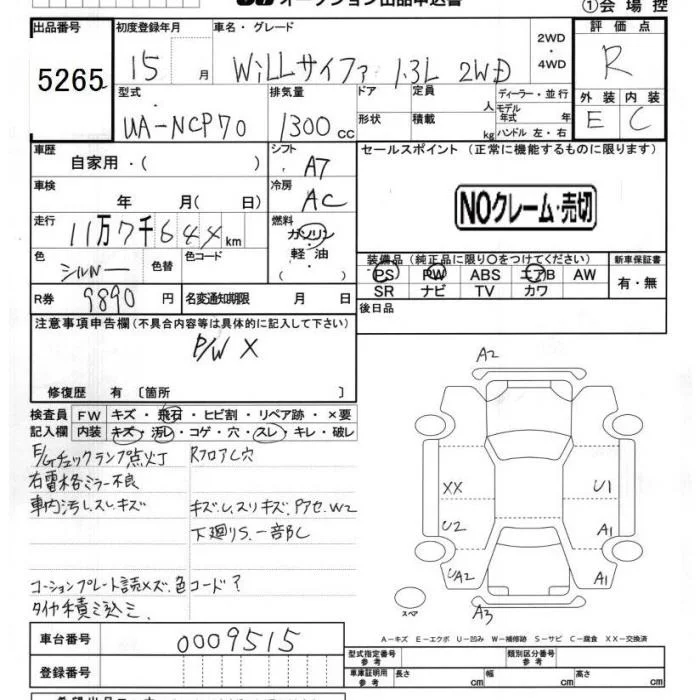 オークション出品申込書
①会場控
出品番号 初度登録年月 車名・グレード 2WD・4WD 評価点
5265 15 月 WiLLサイファ 1.3L 2WD R
型式 排気量 ドア 定員 人 ディーラー・並行 外装 内装
UA-NCP70 1300 cc 形状 積載 kg モデル年式 年 ハンドル 左・右 E C
車歴 自家用・( ) シフト A7 セールスポイント (正常に機能するものに限ります)
車検 年 月( 日) 冷房 AC
NOクレーム・売切
走行 11万7千644km 燃料 ガソリン・軽油 ( )
色 シルバー 色替 色コード
装備品 (純正品に限り〇をつけてください) 新車保証書
PS PW ABS エアB AW 有・無
SR ナビ TV カワ
R券 9890円 名変通知期限 月 日
後日品
注意事項申告欄(不具合内容等は具体的に記入して下さい)
P/W X
修復歴 有 〔箇所 〕
検査員記入欄 FW キズ・飛石・ヒビ割・リペア跡・×要
内装 キズ・汚レ・コゲ・穴・スレ・キレ・破レ
E/Gチェックランプ点灯 RフロアC穴
右電格ミラー不良
車内汚レ.スレ.キズ キズU.スリキズ.PアセW2
下廻りS.一部C
コーションプレート読メズ.色コード?
タイヤ積ミ込ミ
A2
XX U1
U2 A1
UA2 A1
A3
スペア
A-キズ E-エクボ U-凹み W-補修跡 S-サビ C-腐食 XX-交換済
車台番号 0009515
型式指定番号 参考 類別区分番号 参考
登録番号
車庫証明用 参考 長さ cm 幅 cm 高さ cm